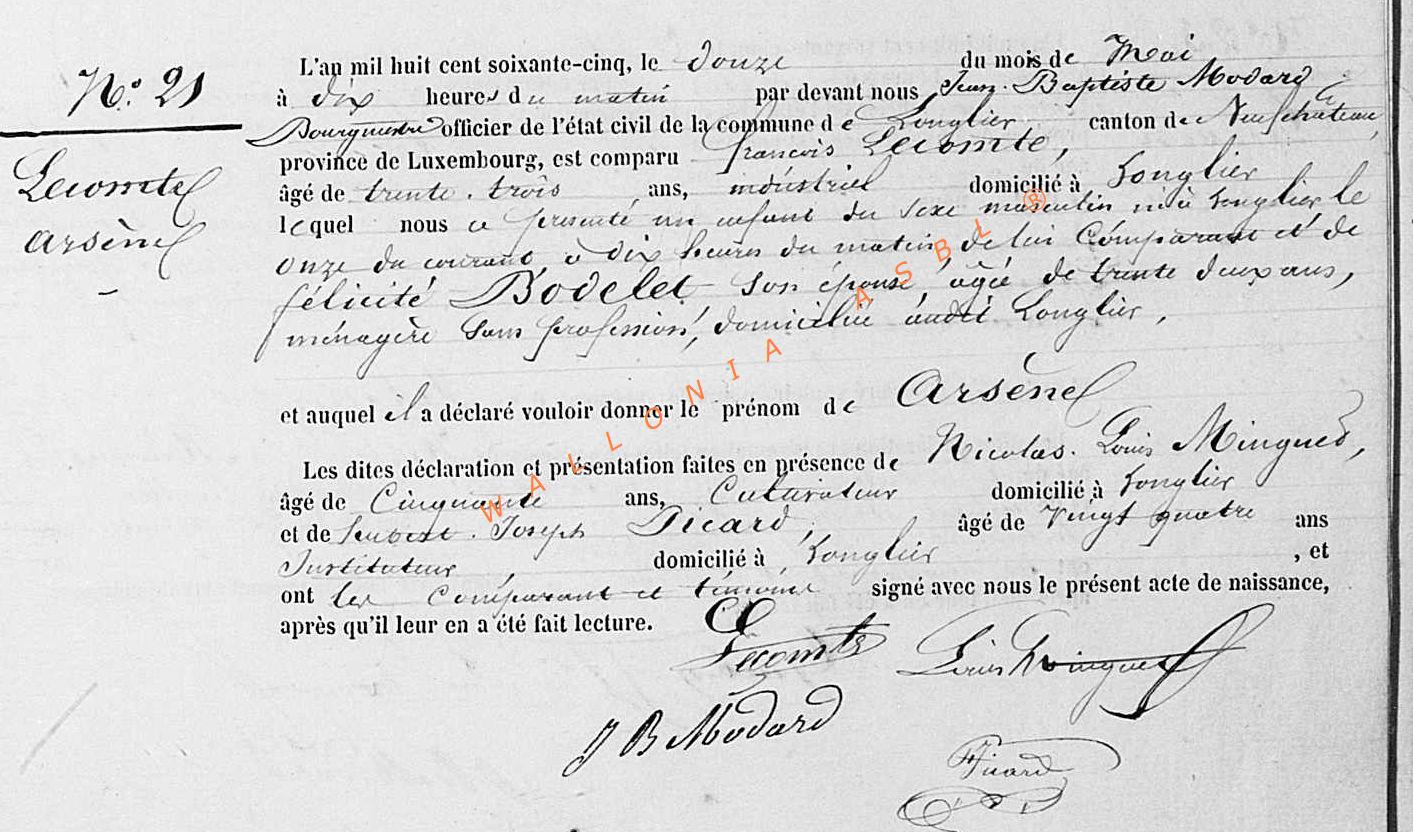 N.° 21
Lecomte
Arsène
L'an mil huit cent soixante-cinq, le douze du mois de Mai
à dix heures du matin par devant nous Jean-Baptiste Modard
Bourgmestre officier de l'état civil de la commune de Longlier canton de Neufchâteau,
province de Luxembourg, est comparu françois Lecomte,
âgé de trente-trois ans, industriel domicilié à Longlier
lequel nous a présenté un enfant du sexe masculin né à Longlier le
onze du courant à dix heures du matin, de lui Comparant et de
félicité Bodelet son épouse âgée de trente deux ans,
ménagère sans profession, domiciliée audit Longlier,
et auquel il a déclaré vouloir donner le prénom de Arsène
Les dites déclaration et présentation faites en présence de Nicolas-Louis Mingued,
âgé de Cinquante ans, Cultivateur domicilié à Longlier
et de hubert-Joseph Picard, âgé de vingt quatre ans
Instituteur, domicilié à Longlier, et
ont les Comparant et témoins signé avec nous le présent acte de naissance,
après qu'il leur en a été fait lecture.
Lecomte
Louis Mingued
J B Modard
Picard
WALLONIA ASBL ®